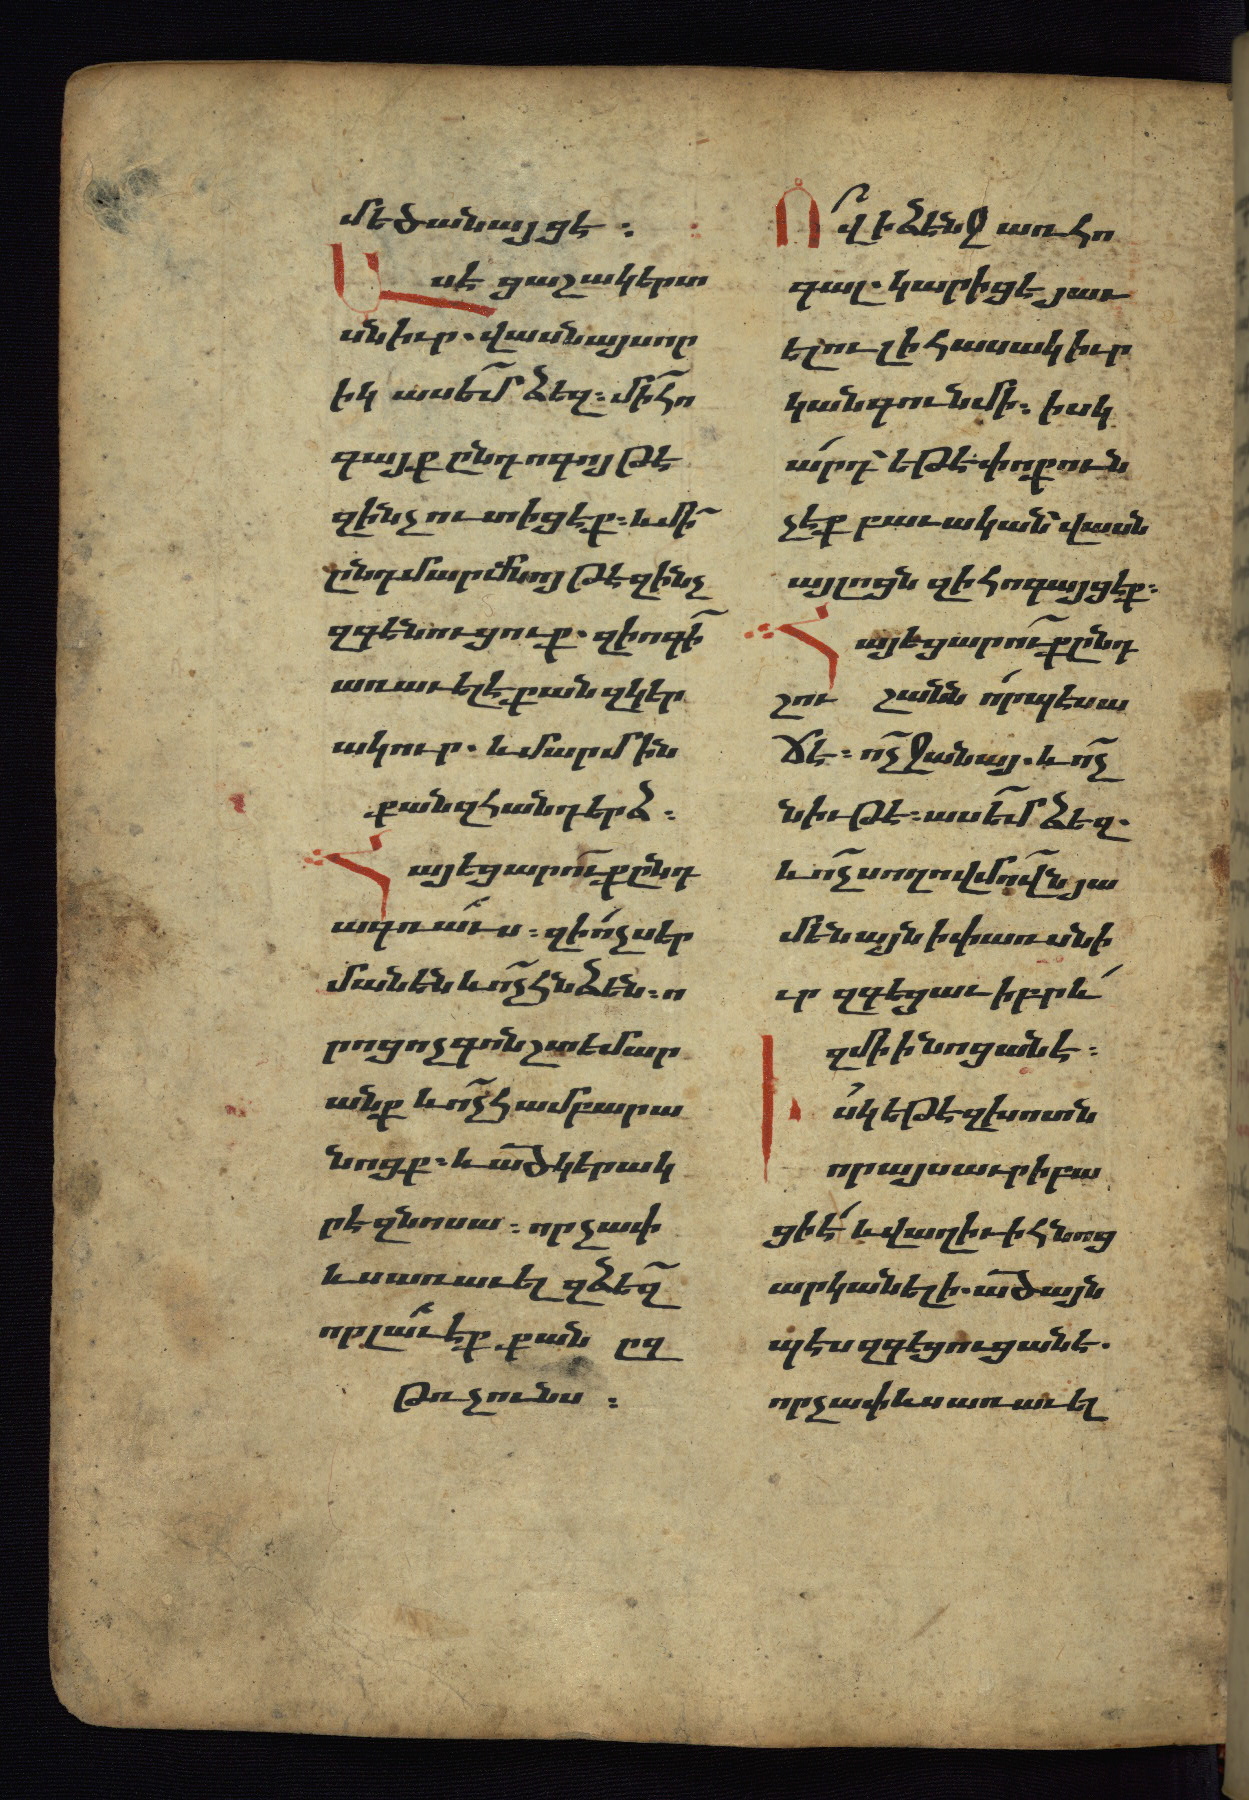 մեծանայցէ։
Ասէ ցաշակերտ
սնիւր. վասնայսոր
իկ ասեմ ձեզ։ մի հո
գայք ընդոգոյ թէ
զինչուտիցէք։ և մի
ընդմարմնոյ թէզինչ
զգենուցուք. զիոգի
առաւելէ քանզկեր
ակուր. և մարմին
քանզհանդերձ։
Հայեցարուքընդ
ագռաւս։ զիոչսեր
մանեն և ոչհնձեն։ ո
րոցոչգոն շտեմար
անք և ոչհամբարա
նոցք։ և ած կերակ
րէ զնոսա։ որչափ
ևսառաւել զձեզ
որլաւէք քան ըզ
թռչունս։
Ով ի ձէնջ առ հո
գալ. կարիցէ յաւ
ելուլ ի հասակ իւր
կանգունմի։ իսկ
արդ՝ եթէ փոքուն
չէք բաւական՝ վասն
այլոցն զիհոգայցէք։
Հայեցարուքընդ
շուշանն որպէսա
ճէ։ ոչջանայ. և ոչ
նիւթէ։ ասեմ ձեզ.
և ոչսողովմովն յա
մենայն ի փառսնի
ւր զգեցաւ իբրև
զմի ի նոցանէ։
Իսկ եթէ զխոտն
որայսաւր ի բա
ցիէ և վաղիւ ի հնոց
արկանելի. ած այն
պէս զգեցուցանէ.
որչափևսառաւել